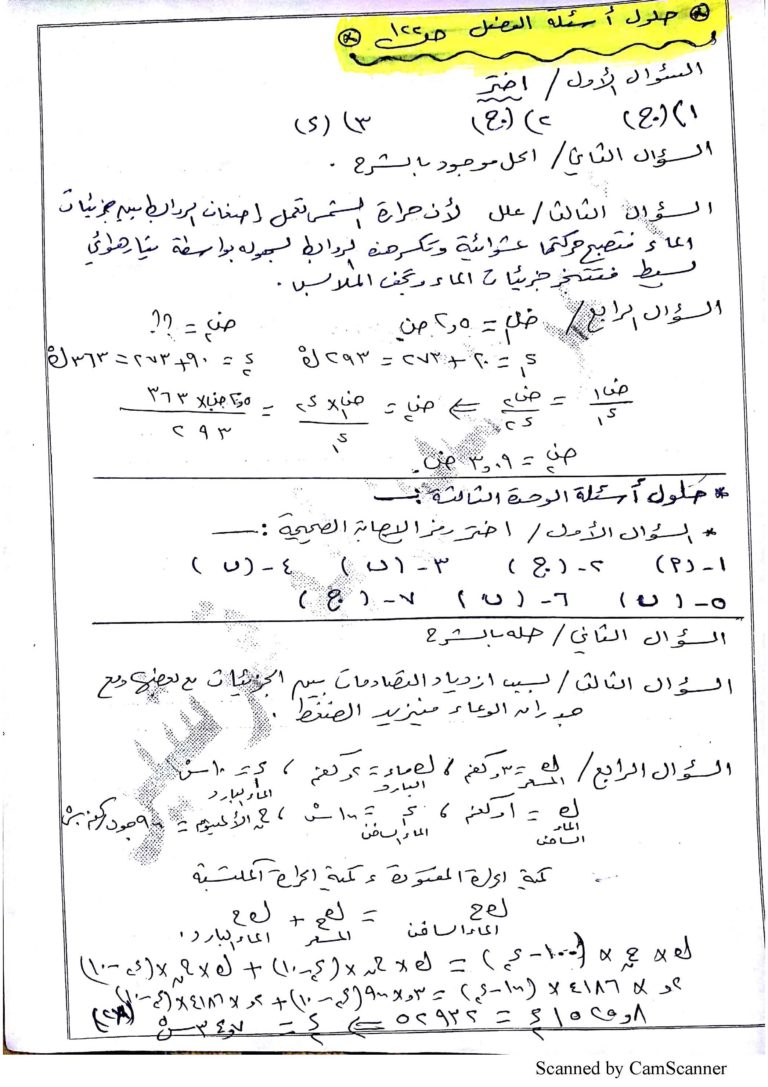 حلول أسئلة الفصل ص ١٢٢
السؤال الأول / اختر
١) (ج) ٢) (ج) ٣) (د)
السؤال الثاني / الحل موجود بالشرح .
السؤال الثالث / علل لأن حرارة الشمس تعمل إضعاف الروابط بين جزيئات
الماء فتصبح حركتها عشوائية وتكسر هذه الروابط بسهولة بواسطة تيار هوائي
بسيط فتتبخر جزيئات الماء وتجف الملابس .
السؤال الرابع / ض١ = ٢,٥ ض ض٢ = ??
د١ = ٢٠ + ٢٧٣ = ٢٩٣ ك د٢ = ٩٠ + ٢٧٣ = ٣٦٣ ك
ض١/د١ = ض٢/د٢ ⇐ ض٢ = ض١ × د٢ / د١ = ٢,٥ ض × ٣٦٣ / ٢٩٣
ض٢ = ٣,٠٩ ض.
* حلول أسئلة الوحدة الثالثة :ـ
* السؤال الأول / اختر رمز الإجابة الصحيحة :ـ
١- (أ) ٢- (ج) ٣- (ب) ٤- (ب)
٥- (ب) ٦- (ب) ٧- (ج)
السؤال الثاني / حله بالشرح
السؤال الثالث / بسبب ازدياد التصادمات بين الجزيئات مع بعضها ومع
جدران الوعاء فيزيد الضغط .
السؤال الرابع / ك المسعر = ٣,كغم ، ك ماء البارد = ٢,كغم ، د الماء البارد = ١٠ س
ك الماء الساخن ، د الماء الساخن = ١٠٠ س ، ح الألمنيوم = ٩٠٠ جول/كغم.س
كمية الحرارة المفقودة = كمية الحرارة المكتسبة
ك ح الماء الساخن = ك ح المسعر + ك ح الماء البارد .
ك × ح × (١٠٠ - د٢) = ك × ح × (د٢ - ١٠) + ك × ح × (د٢ - ١٠)
× ٤١٨٦ × (١٠٠ - د٢) = ٣, × ٩٠٠ (د٢ - ١٠) + ٢, × ٤١٨٦ × (د٢ - ١٠)
د٢ = ٥٢٩٣٢ ⇐ د٢ = ٣٤,٧ س
Scanned by CamScanner